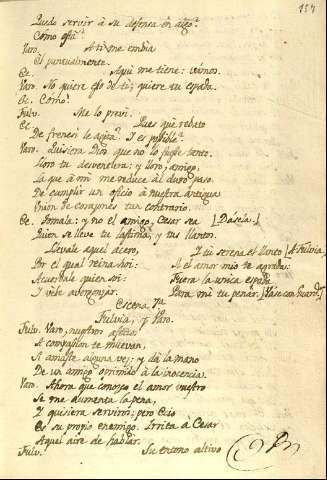 157
Puedo servir à su defensa en algo?
Cómo està?
Varo. A ti me embia
El puntualmente.
Ec. Aqui me tiene: vamos.
Varo. No quiere eso de ti; quiere tu espada.
Ec. Cómo?
Fulv. Me lo previ.
Ec. Pues què rebato
De frenesi le agita? Y es posible?
Varo. Quisiera Dios que no lo fuese tanto.
Lloro tu desventura: y lloro, amigo,
La que à mi me reduce al duro paso
De cumplir un oficio à nuestra antigua
Union de corazones tan contrario.
Ec. Tomala: y no el amigo, Cesar sea [Dasela:]
Quien se lleve tu lastima, y tus llantos.
Llevale aquel acero,
Por el qual reina hoi:
Acuerdale quien soi:
I vele avergonzar.
Y tu serena el llanto [A Fulvia,
A el amor mio te agrada:
Fuera la unica espada
Para mi tu penar. [Vase con Guard.s]
Escena 7.a
Fulvia, y Varo.
Fulv. Varo, nuestros afectos
A compasion te muevan,
Si amaste alguna vez; y dà la mano
De un amigo oprimido à la inocencia.
Varo. Ahora que conozco el amor vuestro
Se me aumenta la pena,
Y quisiera serviros; pero Ecio
Es su propio enemigo. Irrita à Cesar
Aquel aire de hablar.
Fulv. Su entono altivo